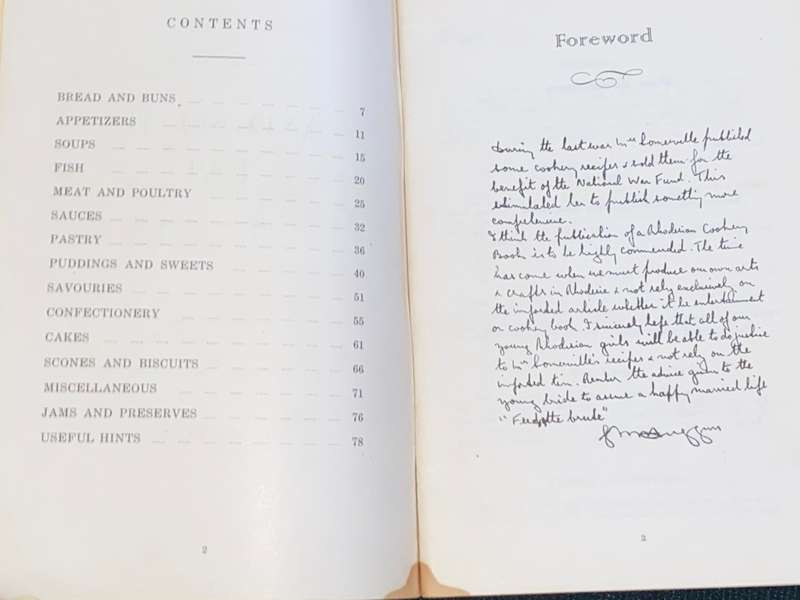 CONTENTS
BREAD AND BUNS 7
APPETIZERS 11
SOUPS 15
FISH 20
MEAT AND POULTRY 25
SAUCES 32
PASTRY 36
PUDDINGS AND SWEETS 40
SAVOURIES 51
CONFECTIONERY 55
CAKES 61
SCONES AND BISCUITS 66
MISCELLANEOUS 71
JAMS AND PRESERVES 76
USEFUL HINTS 78
2
Foreword
During the last war Mrs Somerville published
some cookery recipes & sold them for the
benefit of the National War Fund. This
stimulated her to publish something more
comprehensive.
I think the publication of a Rhodesian Cookery
Book is to be highly commended. The time
has come when we must produce our own arts
& crafts in Rhodesia & not rely exclusively on
the imported article whether it be entertainment
or cookery book. I sincerely hope that all of our
young Rhodesian girls will be able to do justice
to Mrs Somerville's recipes & not rely on the
imported tin. the advice given to the
young bride to assure a happy married life
"Feed the brute"